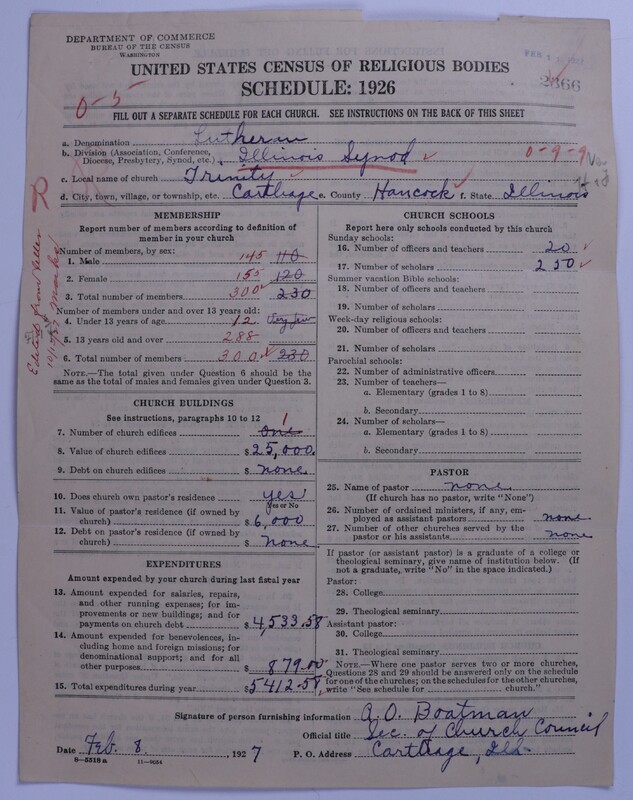 DEPARTMENT OF COMMERCE
BUREAU OF THE CENSUS
WASHINGTON
UNITED STATES CENSUS OF RELIGIOUS BODIES
SCHEDULE: 1926
2866
0-5
FILL OUT A SEPARATE SCHEDULE FOR EACH CHURCH. SEE INSTRUCTIONS ON THE BACK OF THIS SHEET
a. Denomination Lutheran
b. Division (Association, Conference, Diocese, Presbytery, Synod, etc.) Illinois Synod 0-9-9
c. Local name of church Trinity
d. City, town, village, or township, etc. Carthage e. County Hancock f. State Illinois
MEMBERSHIP
Report number of members according to definition of
member in your church
Number of members, by sex:
1. Male 145 110
2. Female 155 120
3. Total number of members 300 230
Number of members under and over 13 years old:
4. Under 13 years of age 12 Very few
5. 13 years old and over 288
6. Total number of members 300 230
NOTE.—The total given under Question 6 should be the
same as the total of males and females given under Question 3.
CHURCH BUILDINGS
See instructions, paragraphs 10 to 12
7. Number of church edifices one 1
8. Value of church edifices $ 25,000.
9. Debt on church edifices $ none
10. Does church own pastor's residence yes
Yes or No
11. Value of pastor's residence (if owned by
church) $ 6,000
12. Debt on pastor's residence (if owned by
church) $ none
EXPENDITURES
Amount expended by your church during last fiscal year
13. Amount expended for salaries, repairs,
and other running expenses; for im-
provements or new buildings; and for
payments on church debt $ 4,533.58
14. Amount expended for benevolences, in-
cluding home and foreign missions; for
denominational support; and for all
other purposes $ 879.00
15. Total expenditures during year $ 5412.58
CHURCH SCHOOLS
Report here only schools conducted by this church
Sunday schools:
16. Number of officers and teachers 20
17. Number of scholars 250
Summer vacation Bible schools:
18. Number of officers and teachers
19. Number of scholars
Week-day religious schools:
20. Number of officers and teachers
21. Number of scholars
Parochial schools:
22. Number of administrative officers
23. Number of teachers—
a. Elementary (grades 1 to 8)
b. Secondary
24. Number of scholars—
a. Elementary (grades 1 to 8)
b. Secondary
PASTOR
25. Name of pastor none
(If church has no pastor, write "None")
26. Number of ordained ministers, if any, em-
ployed as assistant pastors none
27. Number of other churches served by the
pastor or his assistants none
If pastor (or assistant pastor) is a graduate of a college or
theological seminary, give name of institution below. (If
not a graduate, write "No" in the space indicated.)
Pastor:
28. College
29. Theological seminary
Assistant pastor:
30. College
31. Theological seminary
NOTE.—Where one pastor serves two or more churches,
Questions 28 and 29 should be answered only on the schedule
for one of the churches; on the schedules for the other churches,
write "See schedule for church."
Signature of person furnishing information A. O. Boatman
Official title Sec. of Church Council
Date Feb. 8, 1927 P. O. Address Carthage, Ills.
8-3518a 11-9084